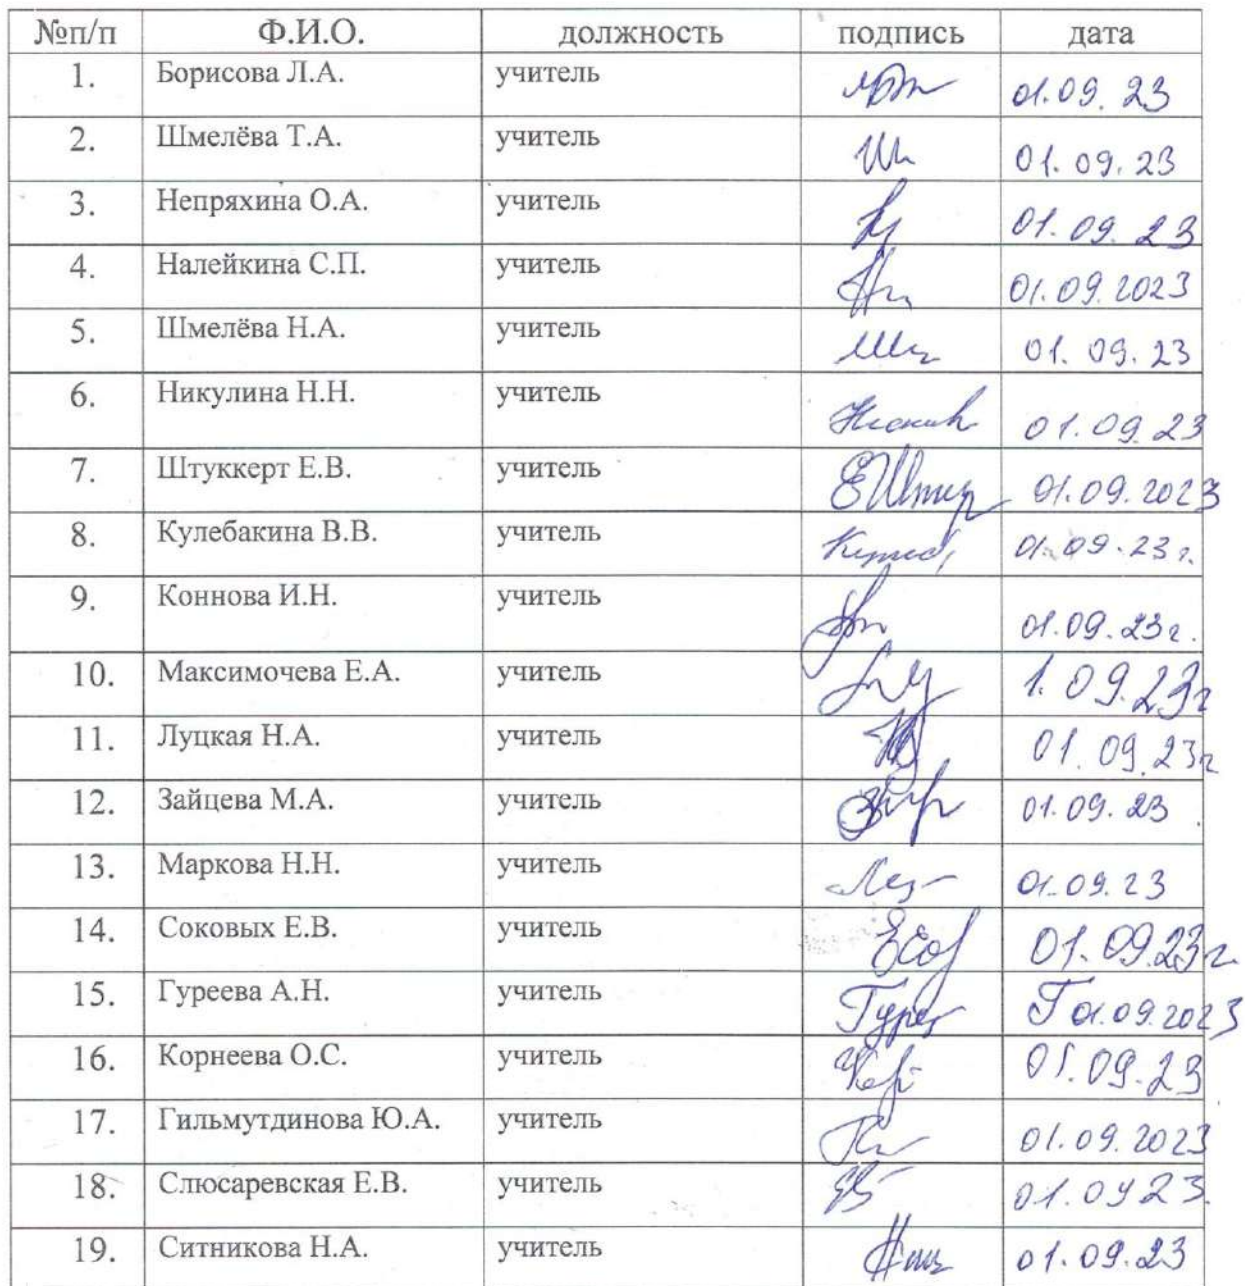 №п/п Ф.И.О. должность подпись дата
1. Борисова Л.А. учитель 01.09.23
2. Шмелёва Т.А. учитель 01.09.23
3. Непряхина О.А. учитель 01.09.23
4. Налейкина С.П. учитель 01.09.2023
5. Шмелёва Н.А. учитель 01.09.23
6. Никулина Н.Н. учитель 01.09.23
7. Штуккерт Е.В. учитель 01.09.2023
8. Кулебакина В.В. учитель 01.09.23г.
9. Коннова И.Н. учитель 01.09.23г.
10. Максимочева Е.А. учитель 1.09.23г
11. Луцкая Н.А. учитель 01.09.23г
12. Зайцева М.А. учитель 01.09.23
13. Маркова Н.Н. учитель 01.09.23
14. Соковых Е.В. учитель 01.09.23г
15. Гуреева А.Н. учитель 01.09.2023
16. Корнеева О.С. учитель 01.09.23
17. Гильмутдинова Ю.А. учитель 01.09.2023
18. Слюсаревская Е.В. учитель 01.0923.
19. Ситникова Н.А. учитель 01.09.23